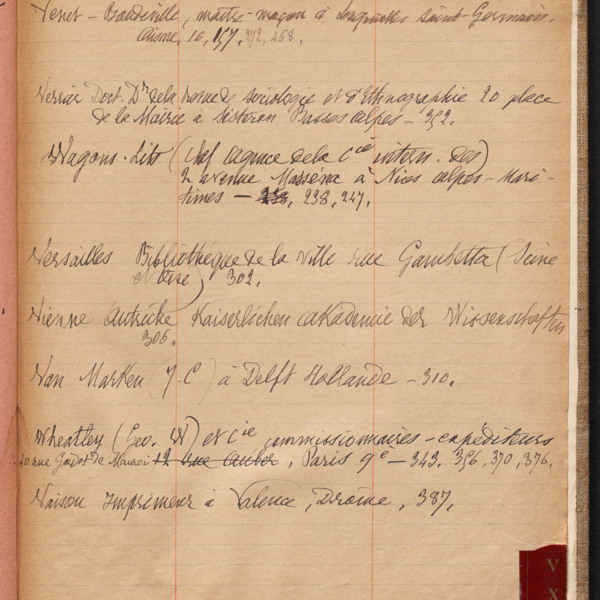 Venet - Baudeville, maître-maçon à Saint-Germain,
Aisne, 16, 157, 272, 268.
Verrier Doct. Dr de la Revue de Sociologie et d'Ethnographie 20 place
de la Mairie à Sisteron Basses Alpes - 352.
Wagons-Lits (Chef agence de la Cie intern. des)
2 avenue Massena à Nice Alpes-Mari-
times - 238, 247.
Versailles Bibliothèque de la Ville rue Gambetta (Seine
et Oise) 302.
Vienne Autriche Kaiserlichen Akademie der Wissenschaften
306.
Van Marken J. C) à Delft Hollande - 310.
Wheatley (Geo. W) et Cie commissionnaires-expéditeurs
rue Godot de Mauroi 12 rue Auber, Paris 9e - 343. 356, 370, 376.
Vaison Imprimeur à Valence, Drôme, 387.
V
X